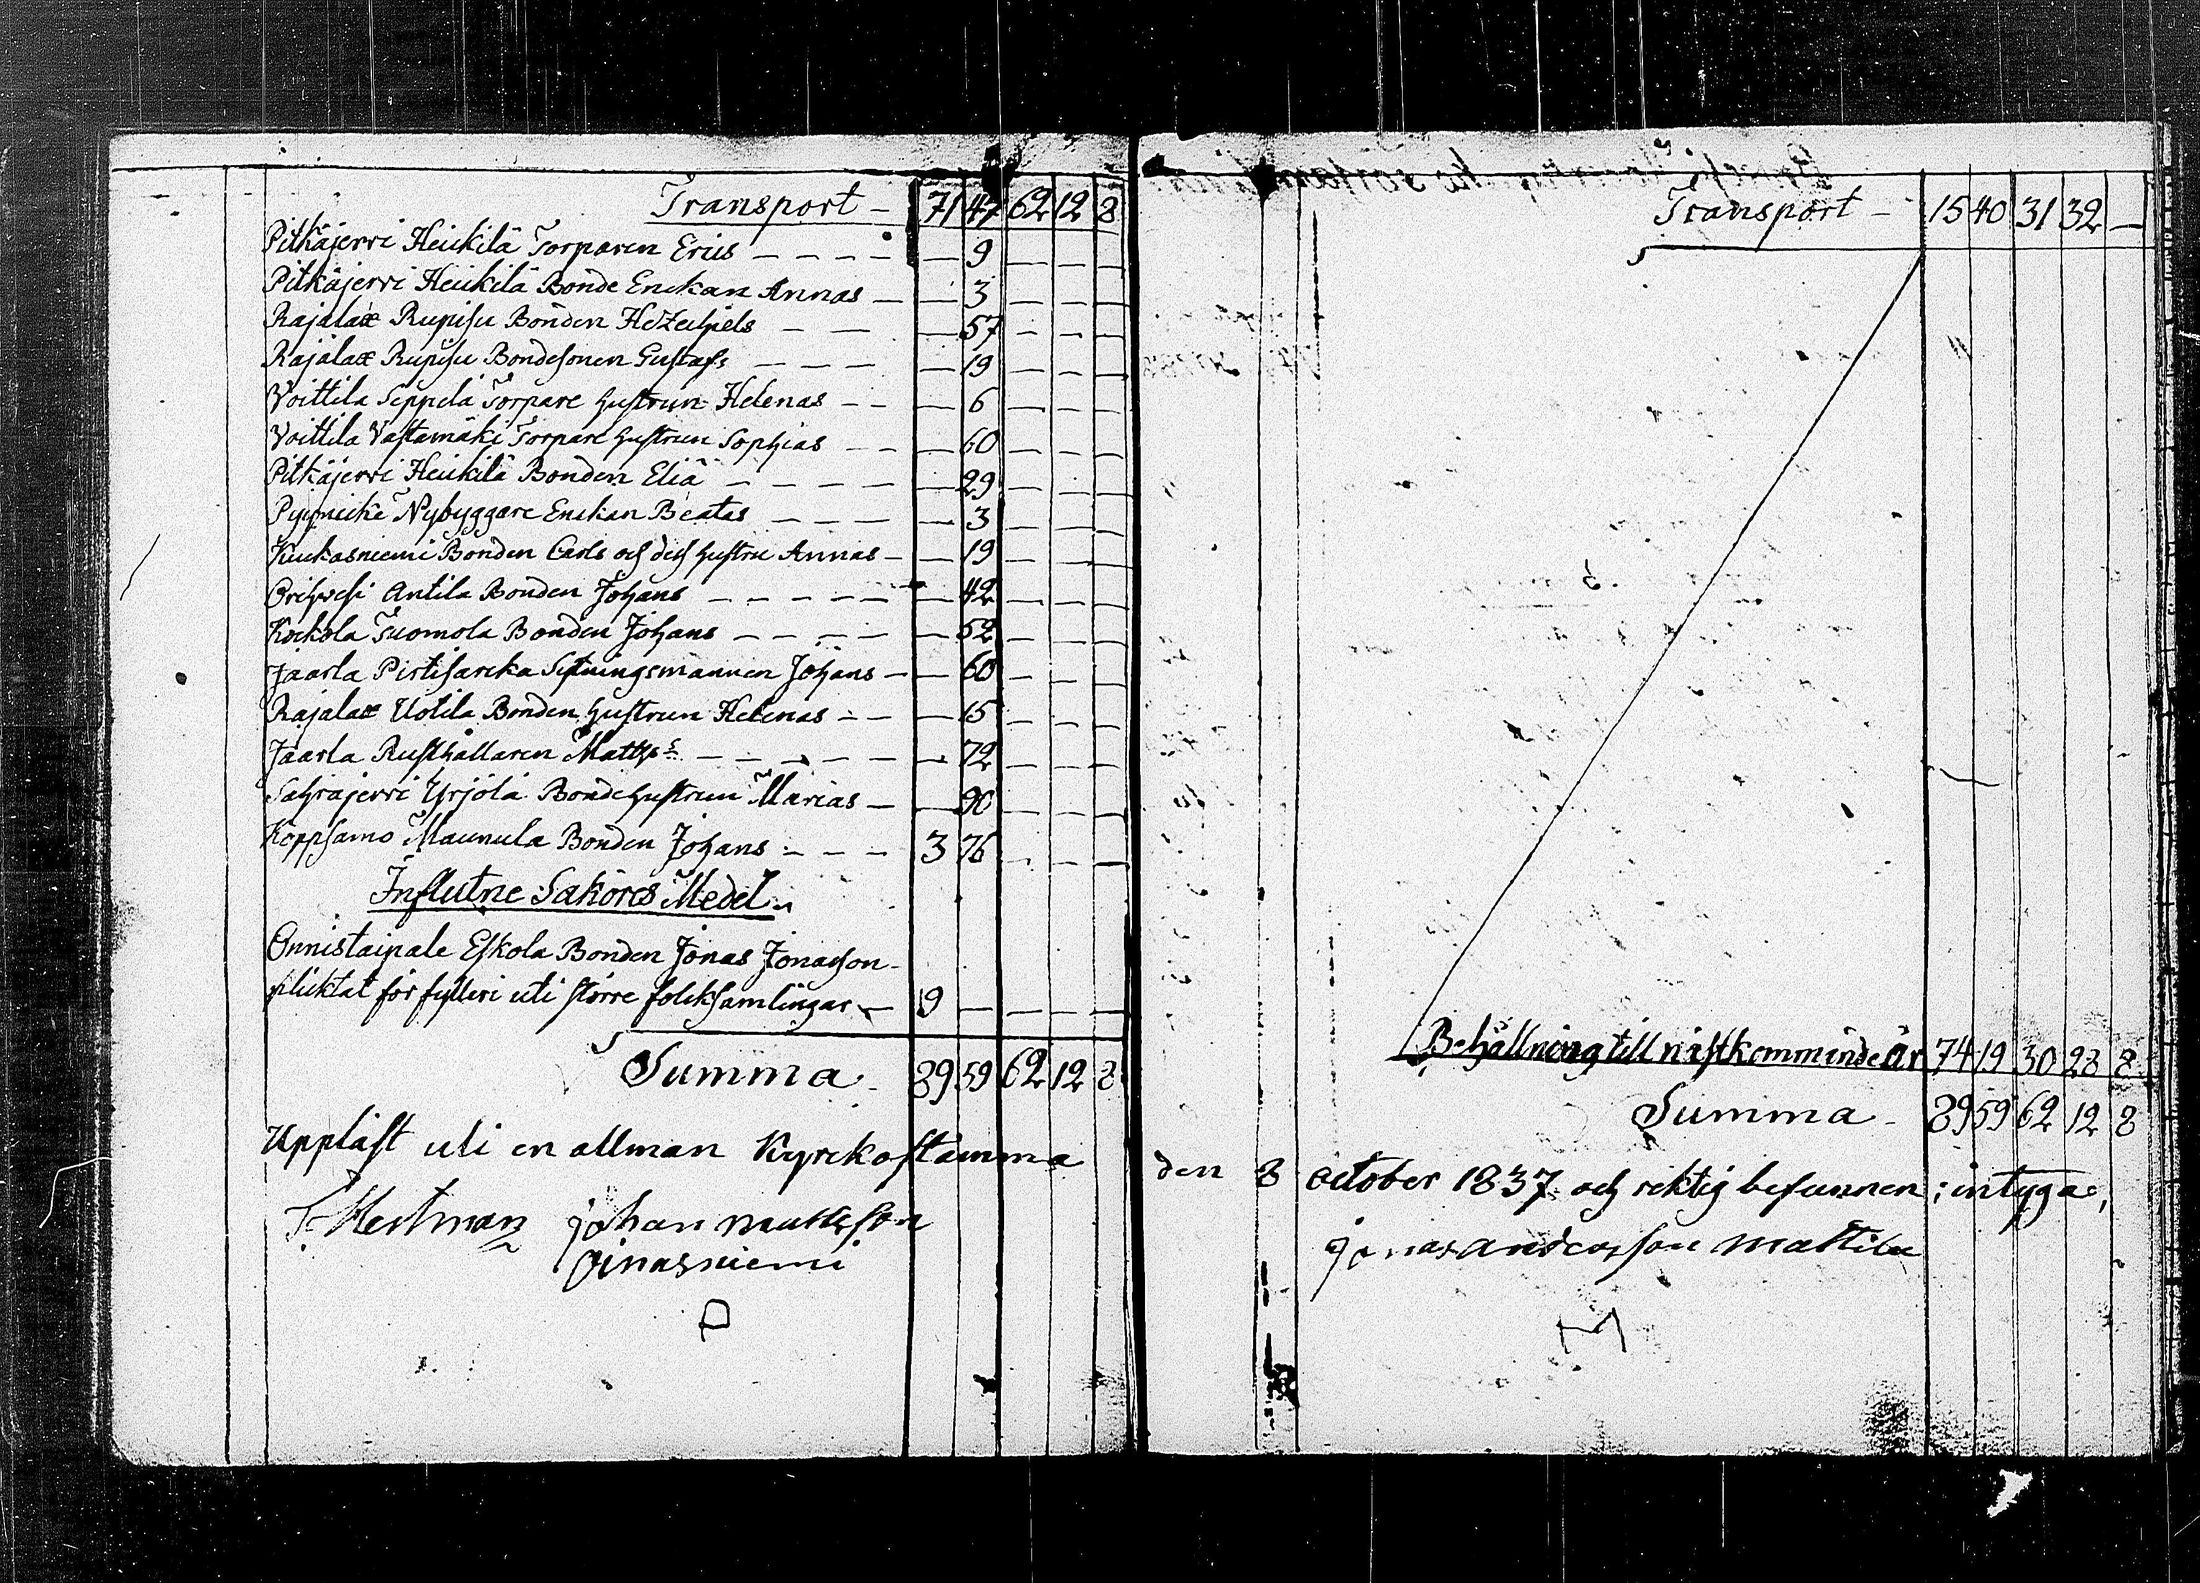 Transport - 71 47 62 12 8
Pitkäjerri Heickilä Torparen Erics - - - - — 9 — — —
Pitkäjerri Heickilä Bonde Enckan Annas - — 3 — — —
Rajalax Rupisu Bonden Hezechiels - - — 57 — — —
Rajalax Rupisu Bondesonen Gustafs - - - — 19 — — —
Voittila Seppelä Torpare hustrun Helenas - - — 6 — — —
Voittila Vastamäki Torpare hustrun Sophias - - — 60 — — —
Pitkäjerri Heickilä Bonden Eliä - - - - — 29 — — —
Pyynicke Nybyggare Enckan Beatas - - - — 3 — — —
Kuckasniemi Bonden Carls och dess hustru Annas - — 19 — — —
Orihvesi Antila Bonden Johans - - - - - — 42 — — —
Kockola Tuomola Bonden Johans - - - - — 52 — — —
Jaarla Pirtisarcka Sexmansmannen Johans - — 60 — — —
Rajalax Uotila Bonden hustrun Helenas - - — 15 — — —
Jaarla Rusthållaren Matths - - - - - — 72 — — —
Sahrajerri Yrjölä Bonde hustrun Marias - — 90 — — —
Koppsamo Maunula Bonden Johans - - - 3 76 — — —
Influtne Saköres Medel
Onnistaipale Eskola Bonden Jonas Jonasson
pliktat för fylleri uti större folksamlingar - 9 — — — —
Summa - 89 59 62 12 8
Uppläst uti en allmän Kyrckostämma
Hertman johan mattsson
oinasniemi
Transport - 15 40 31 32 —
Behållning till nästkommande år 74 19 30 28 8
Summa - 89 59 62 12 8
den 8 october 1837 och riktig befunnen; intygas,
jonas andersson mattila